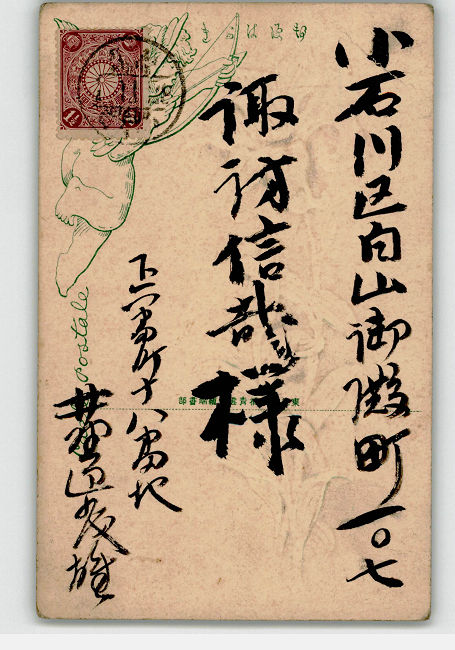 郵便はがき
小石川区白山御殿町一〇七
諏訪信哉様
下六番町十八番地
Postale
1½